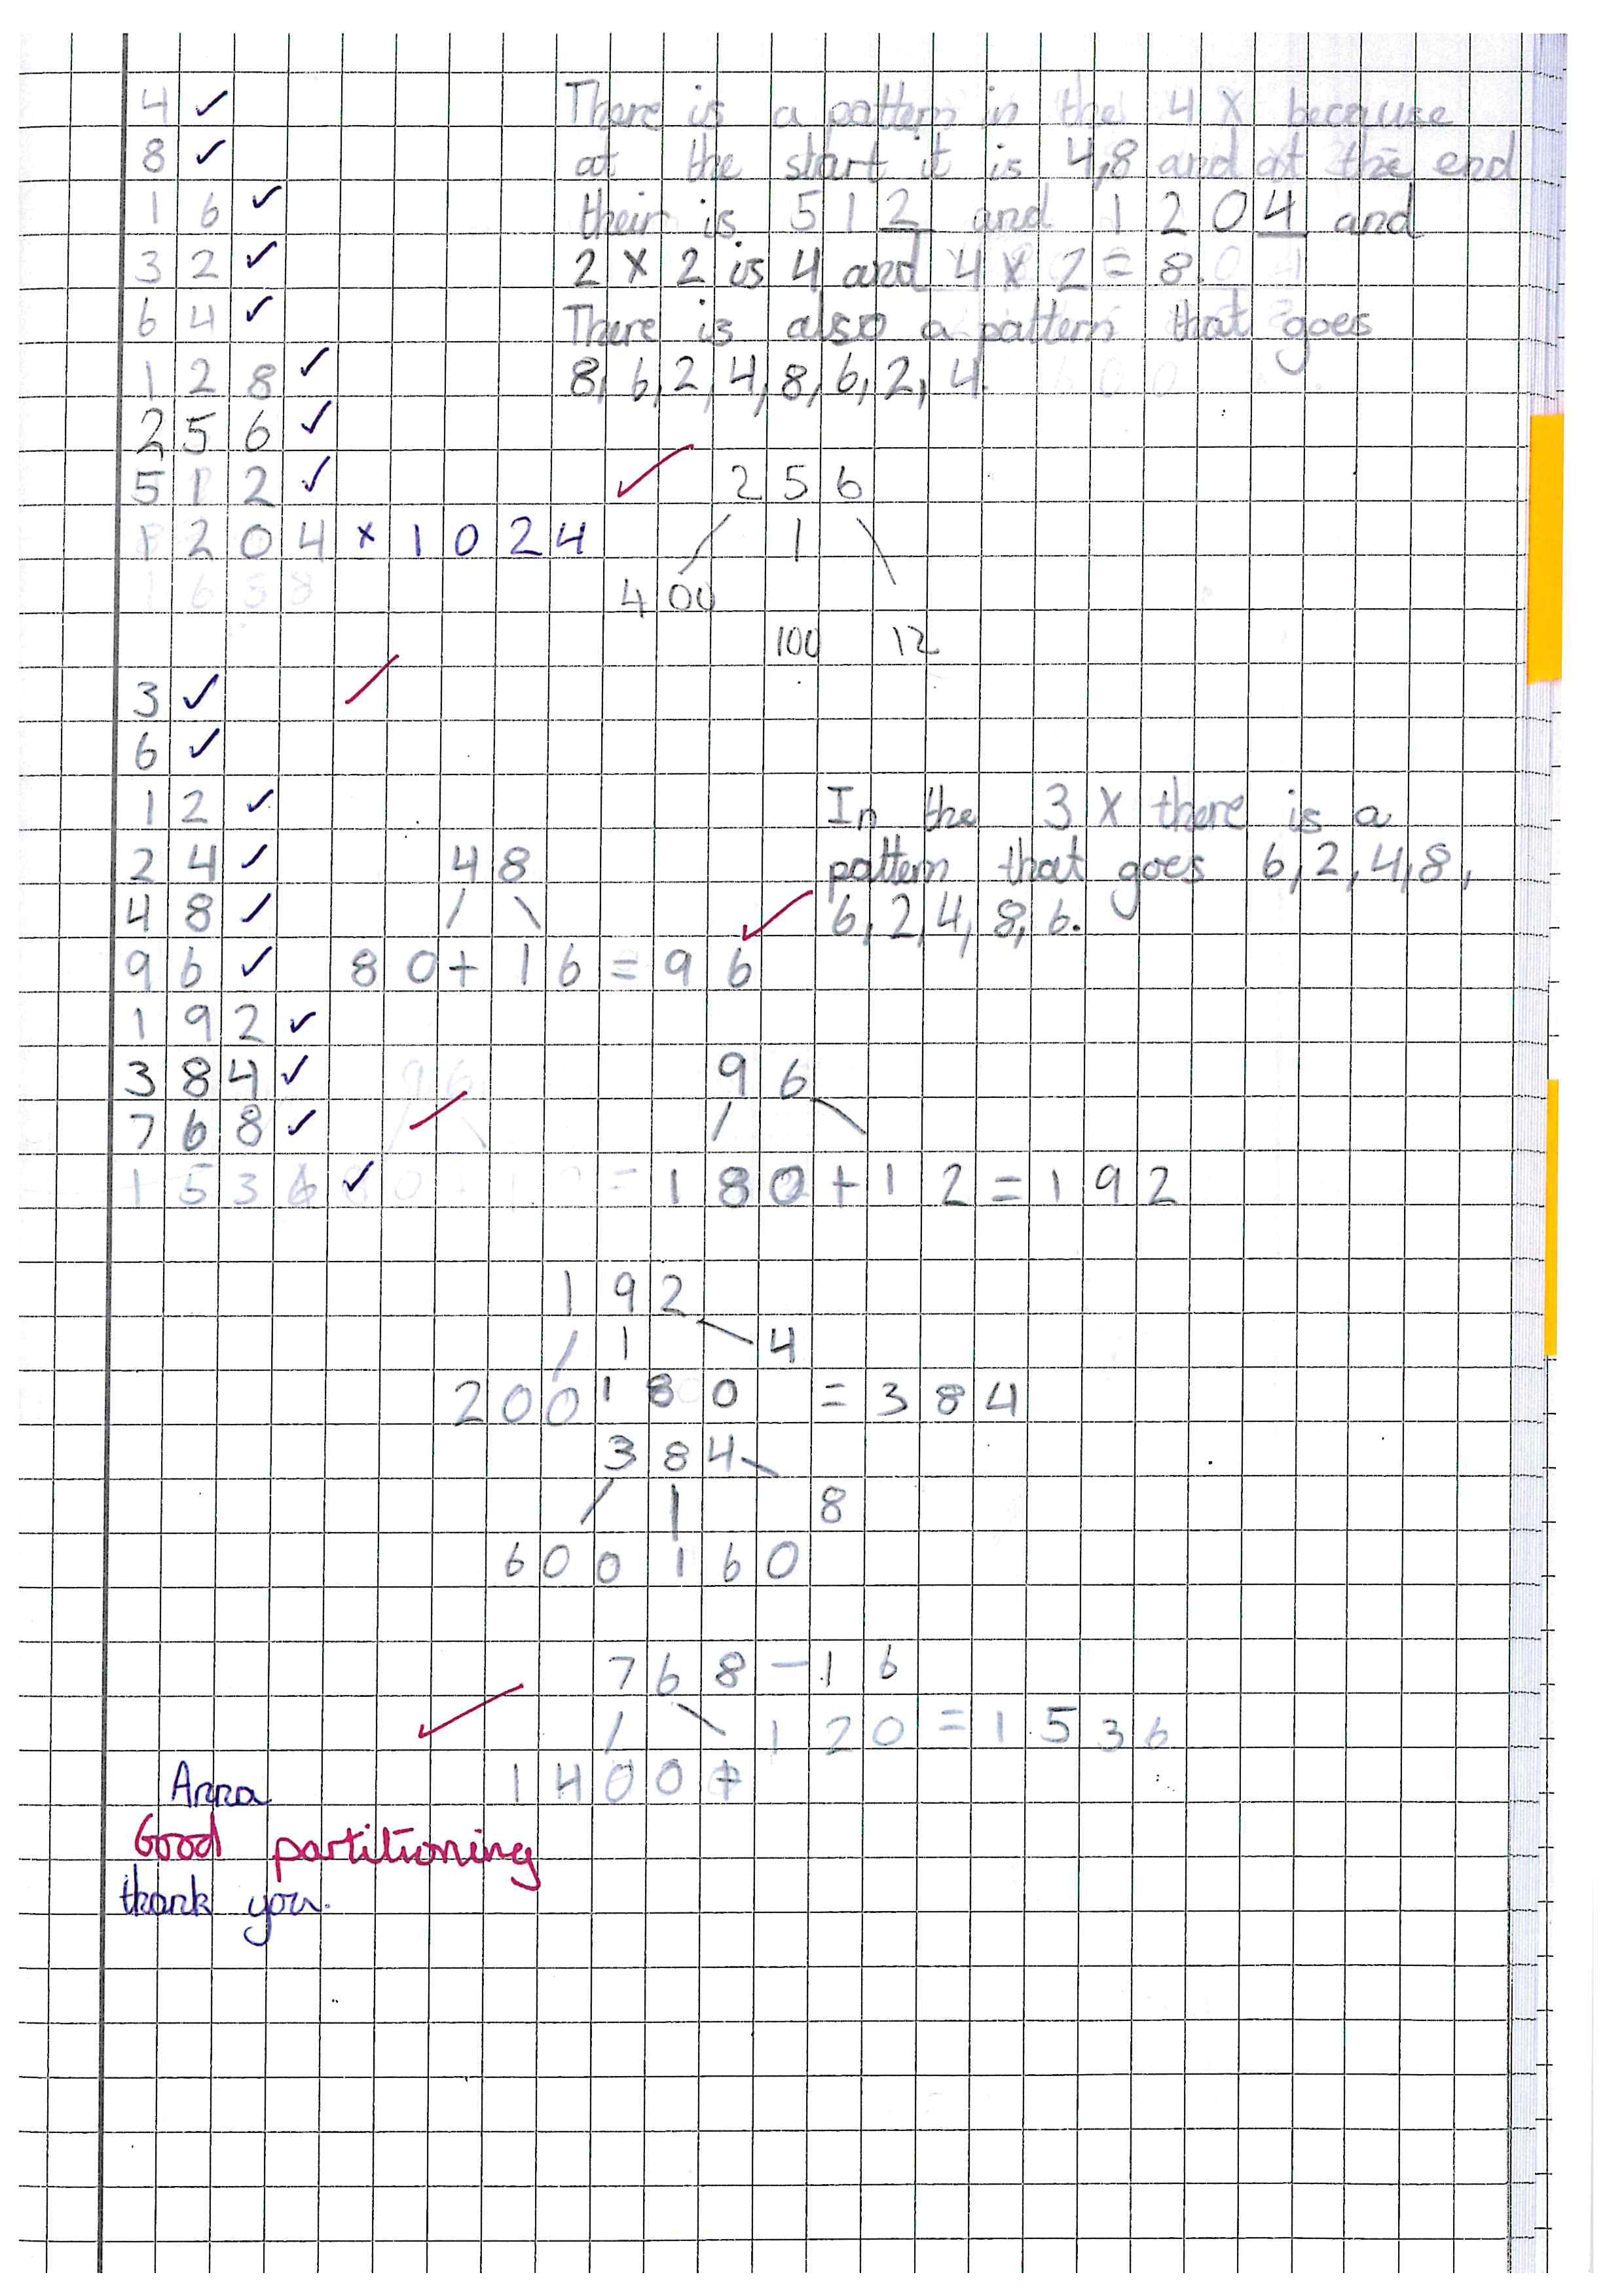 4 ✓
8 ✓
16 ✓
32 ✓
64 ✓
128 ✓
256 ✓
512 ✓
1204 × 1024
There is a pattern in the 4 X because
at the start it is 4,8 and at the end
their is 512 and 1204 and
2 X 2 is 4 and 4 X 2 = 8.
There is also a pattern that goes
8, 6, 2, 4, 8, 6, 2, 4.
256
400
100 12
3 ✓
6 ✓
12 ✓
24 ✓
48 ✓
96 ✓
192 ✓
384 ✓
768 ✓
1536 ✓
In the 3 X there is a
pattern that goes 6, 2, 4, 8,
6, 2, 4, 8, 6.
48
80 + 16 = 96
96
= 180 + 12 = 192
192
4
200 180 = 384
384
8
600 160
768 - 16
120 = 1536
1400 +
Anna
Good partitioning
thank you.